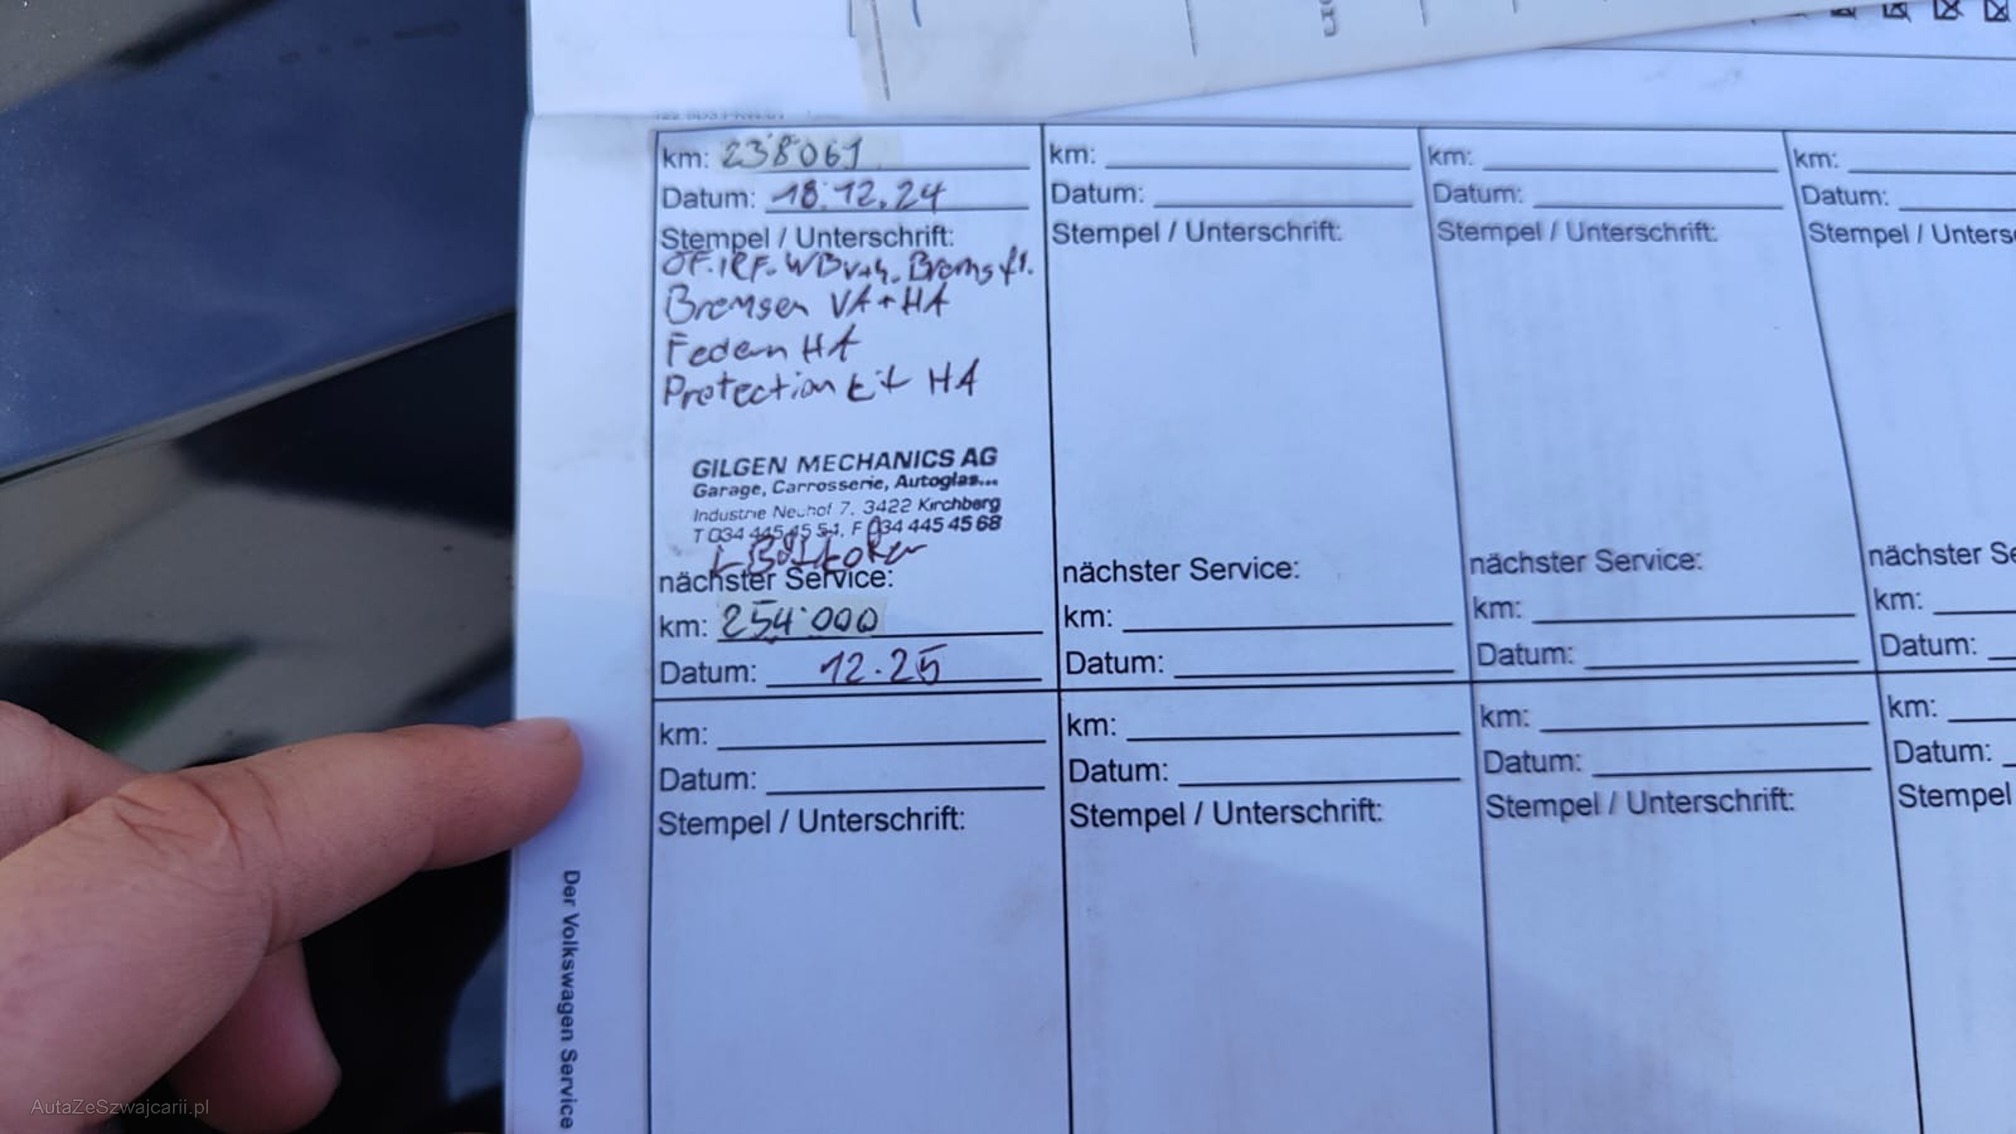 km: 238'061
Datum: 18.12.24
Stempel / Unterschrift:
ÖF. IRF. WBv+h. Bremsfl.
Bremsen VA + HA
Federn HA
Protection kit HA
GILGEN MECHANICS AG
Garage, Carrosserie, Autoglas...
Industrie Neuhof 7, 3422 Kirchberg
T 034 445 45 54, F 034 445 45 68
nächster Service:
km: 254'000
Datum: 12.25
km:
Datum:
Stempel / Unterschrift:
nächster Service:
km:
Datum:
km:
Datum:
Stempel / Unterschrift:
nächster Service:
km:
Datum:
km:
Datum:
Stempel / Unters
nächster Se
km:
Datum:
km:
Datum:
Stempel / Unterschrift:
km:
Datum:
Stempel / Unterschrift:
km:
Datum:
Stempel / Unterschrift:
km:
Datum:
Stempel
Der Volkswagen Service
AutaZeSzwajcarii.pl